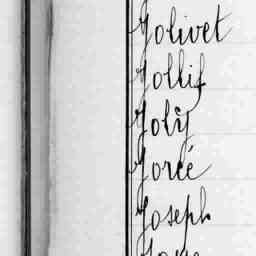 Jolivet
Jollif
Joly
Jorcé
Joseph